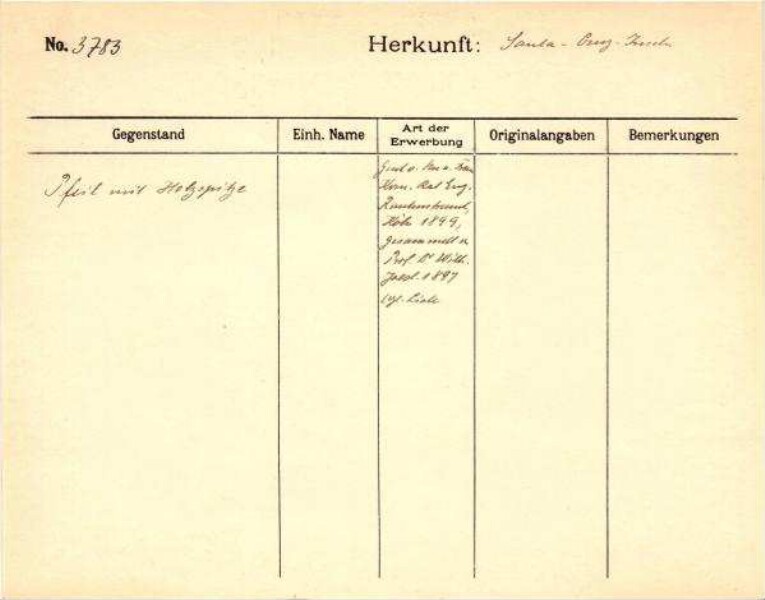 No. 3783
Herkunft: Santa-Cruz-Inseln
Gegenstand
Einh. Name
Art der
Erwerbung
Originalangaben
Bemerkungen
Pfeil mit Holzspitze
Frau
Kom. Rat Eug.
Rautenstrauch,
Köln 1899,
gesammelt v.
Prof. Dr Wilh.
Joest 1897
vgl. Liste